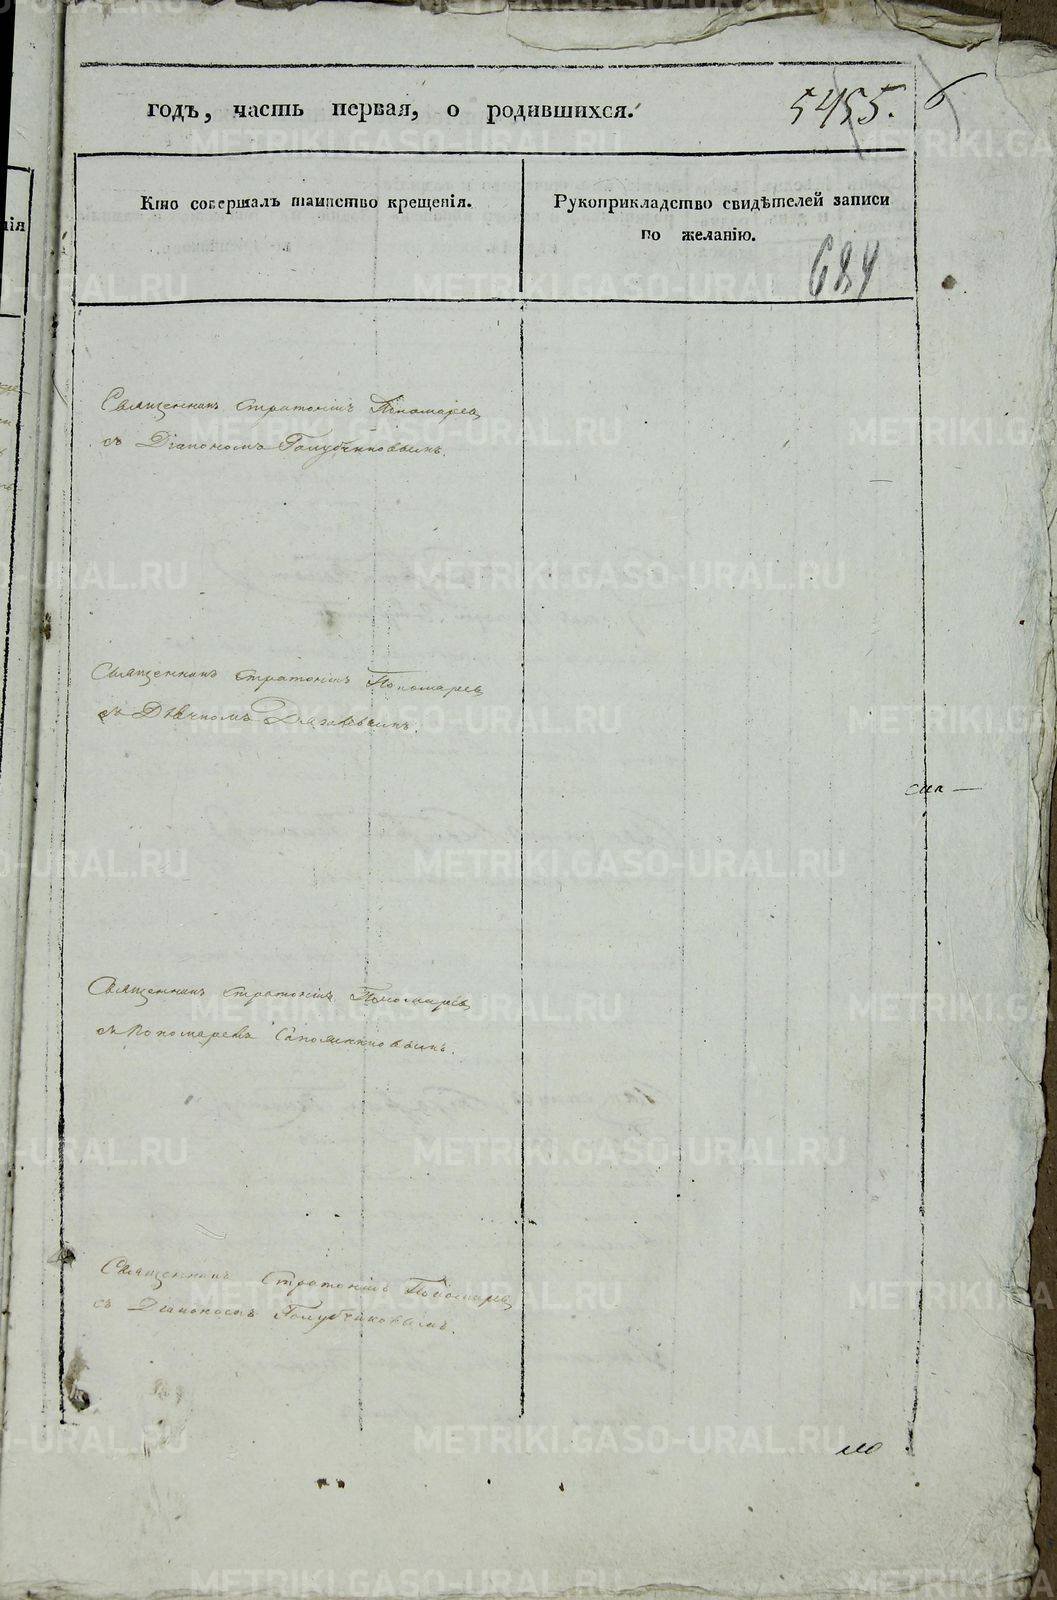 годъ, часть первая, о родившихся.
5455.
6
Кто совершалъ таинство крещенія.
Рукоприкладство свидѣтелей записи
по желанію.
684
Священникъ Стратоникъ Пономаревъ
съ Діакономъ Голубчиковымъ.
Священникъ Стратоникъ Пономаревъ
съ Дьячкомъ
Священникъ Стратоникъ Пономаревъ
съ Пономаремъ Сапожниковымъ.
Священникъ Стратоникъ Пономаревъ
съ Діакономъ Голубчиковымъ.
METRIKI.GASO-URAL.RU